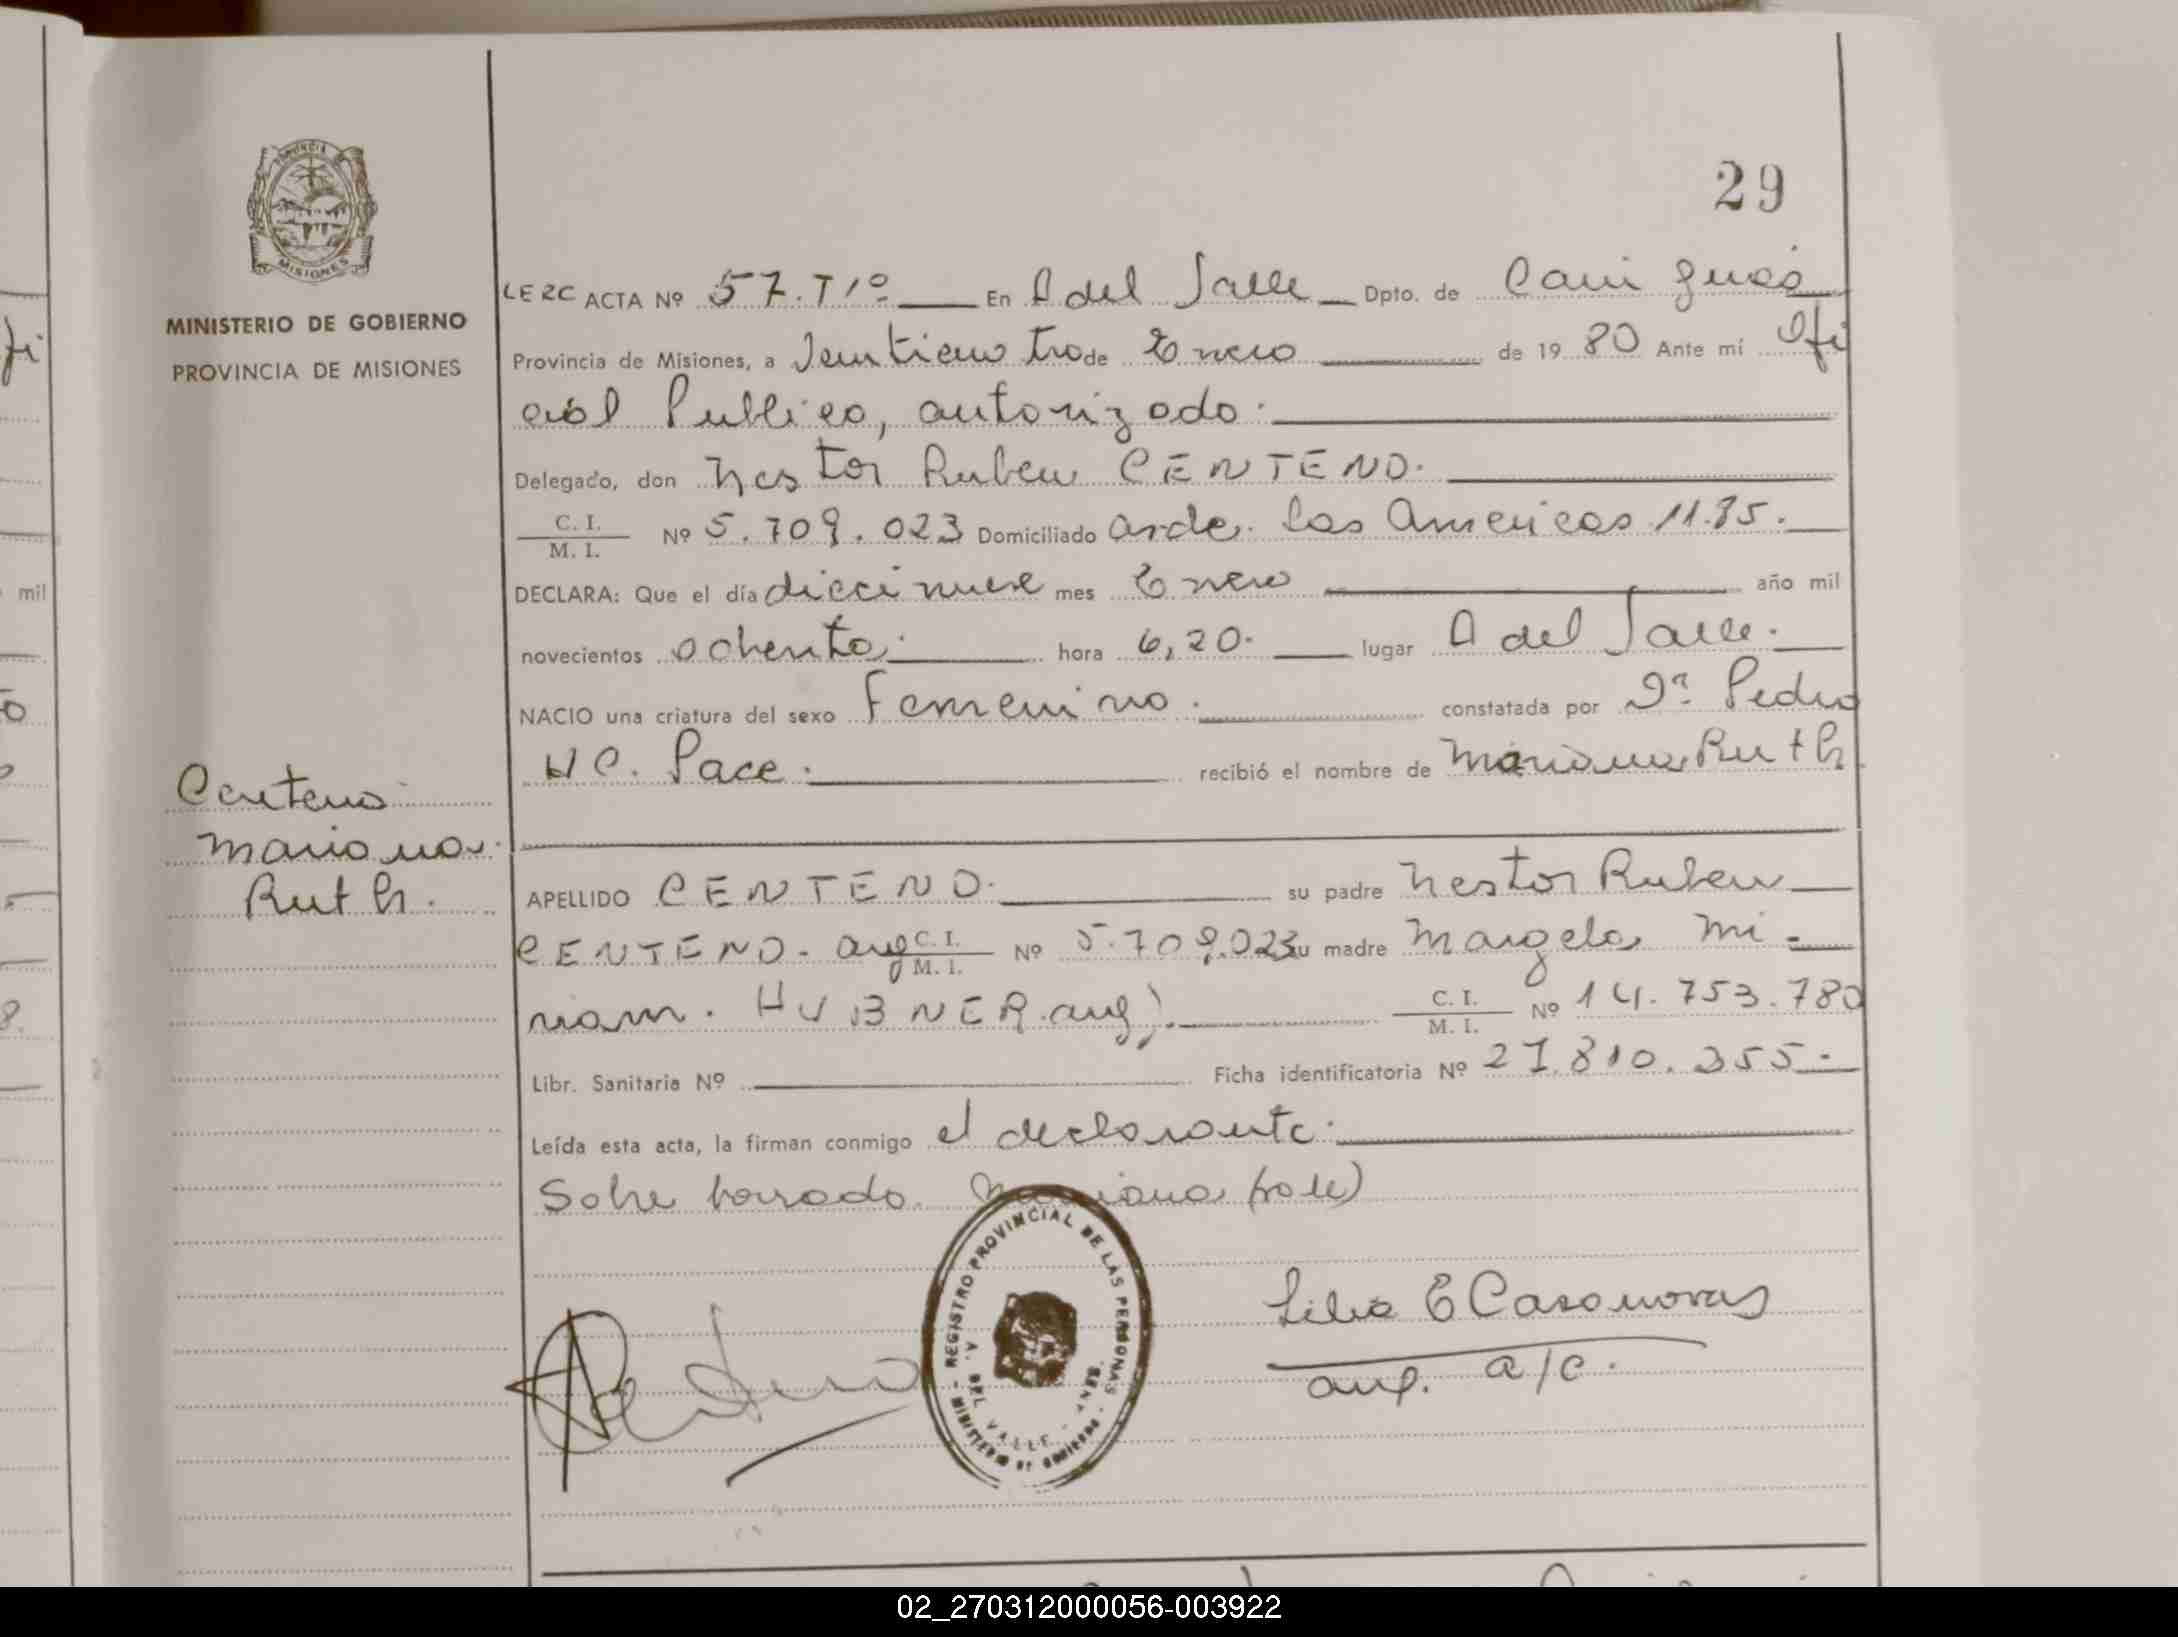 29
PROVINCIA DE
MISIONES
MINISTERIO DE GOBIERNO
PROVINCIA DE MISIONES
LERC ACTA Nº 57. T1º En A del Valle Dpto. de Cain guás
Provincia de Misiones, a Veinticuatro de Enero de 19 80 Ante mí Ofi
cial Publico, autorizado.
Delegado, don Nestor Ruben CENTENO.
C. I.
M. I. Nº 5.709.023 Domiciliado avda. Las Americas 1185.
DECLARA: Que el día diecinueve mes Enero año mil
novecientos ochenta. hora 6,20. lugar A del Valle.
NACIO una criatura del sexo Femenino. constatada por Dr. Pedro
H C. Pace. recibió el nombre de Mariana Ruth.
Centeno
Mariana.
Ruth.
APELLIDO CENTENO. su padre Nestor Ruben
CENTENO. arg C. I.
M. I. Nº 5.709.023 su madre Margela Mi
riam. HUBNER. arg). C. I.
M. I. Nº 14.753.780
Libr. Sanitaria Nº Ficha identificatoria Nº 27.810.355.
Leída esta acta, la firman conmigo el declarante.
Sobre borrado. Mariana (vale)
REGISTRO PROVINCIAL DE LAS PERSONAS
MINISTERIO DE GOBIERNO
A. DEL VALLE
E Casanovas
a/c.
mil
02_270312000056-003922